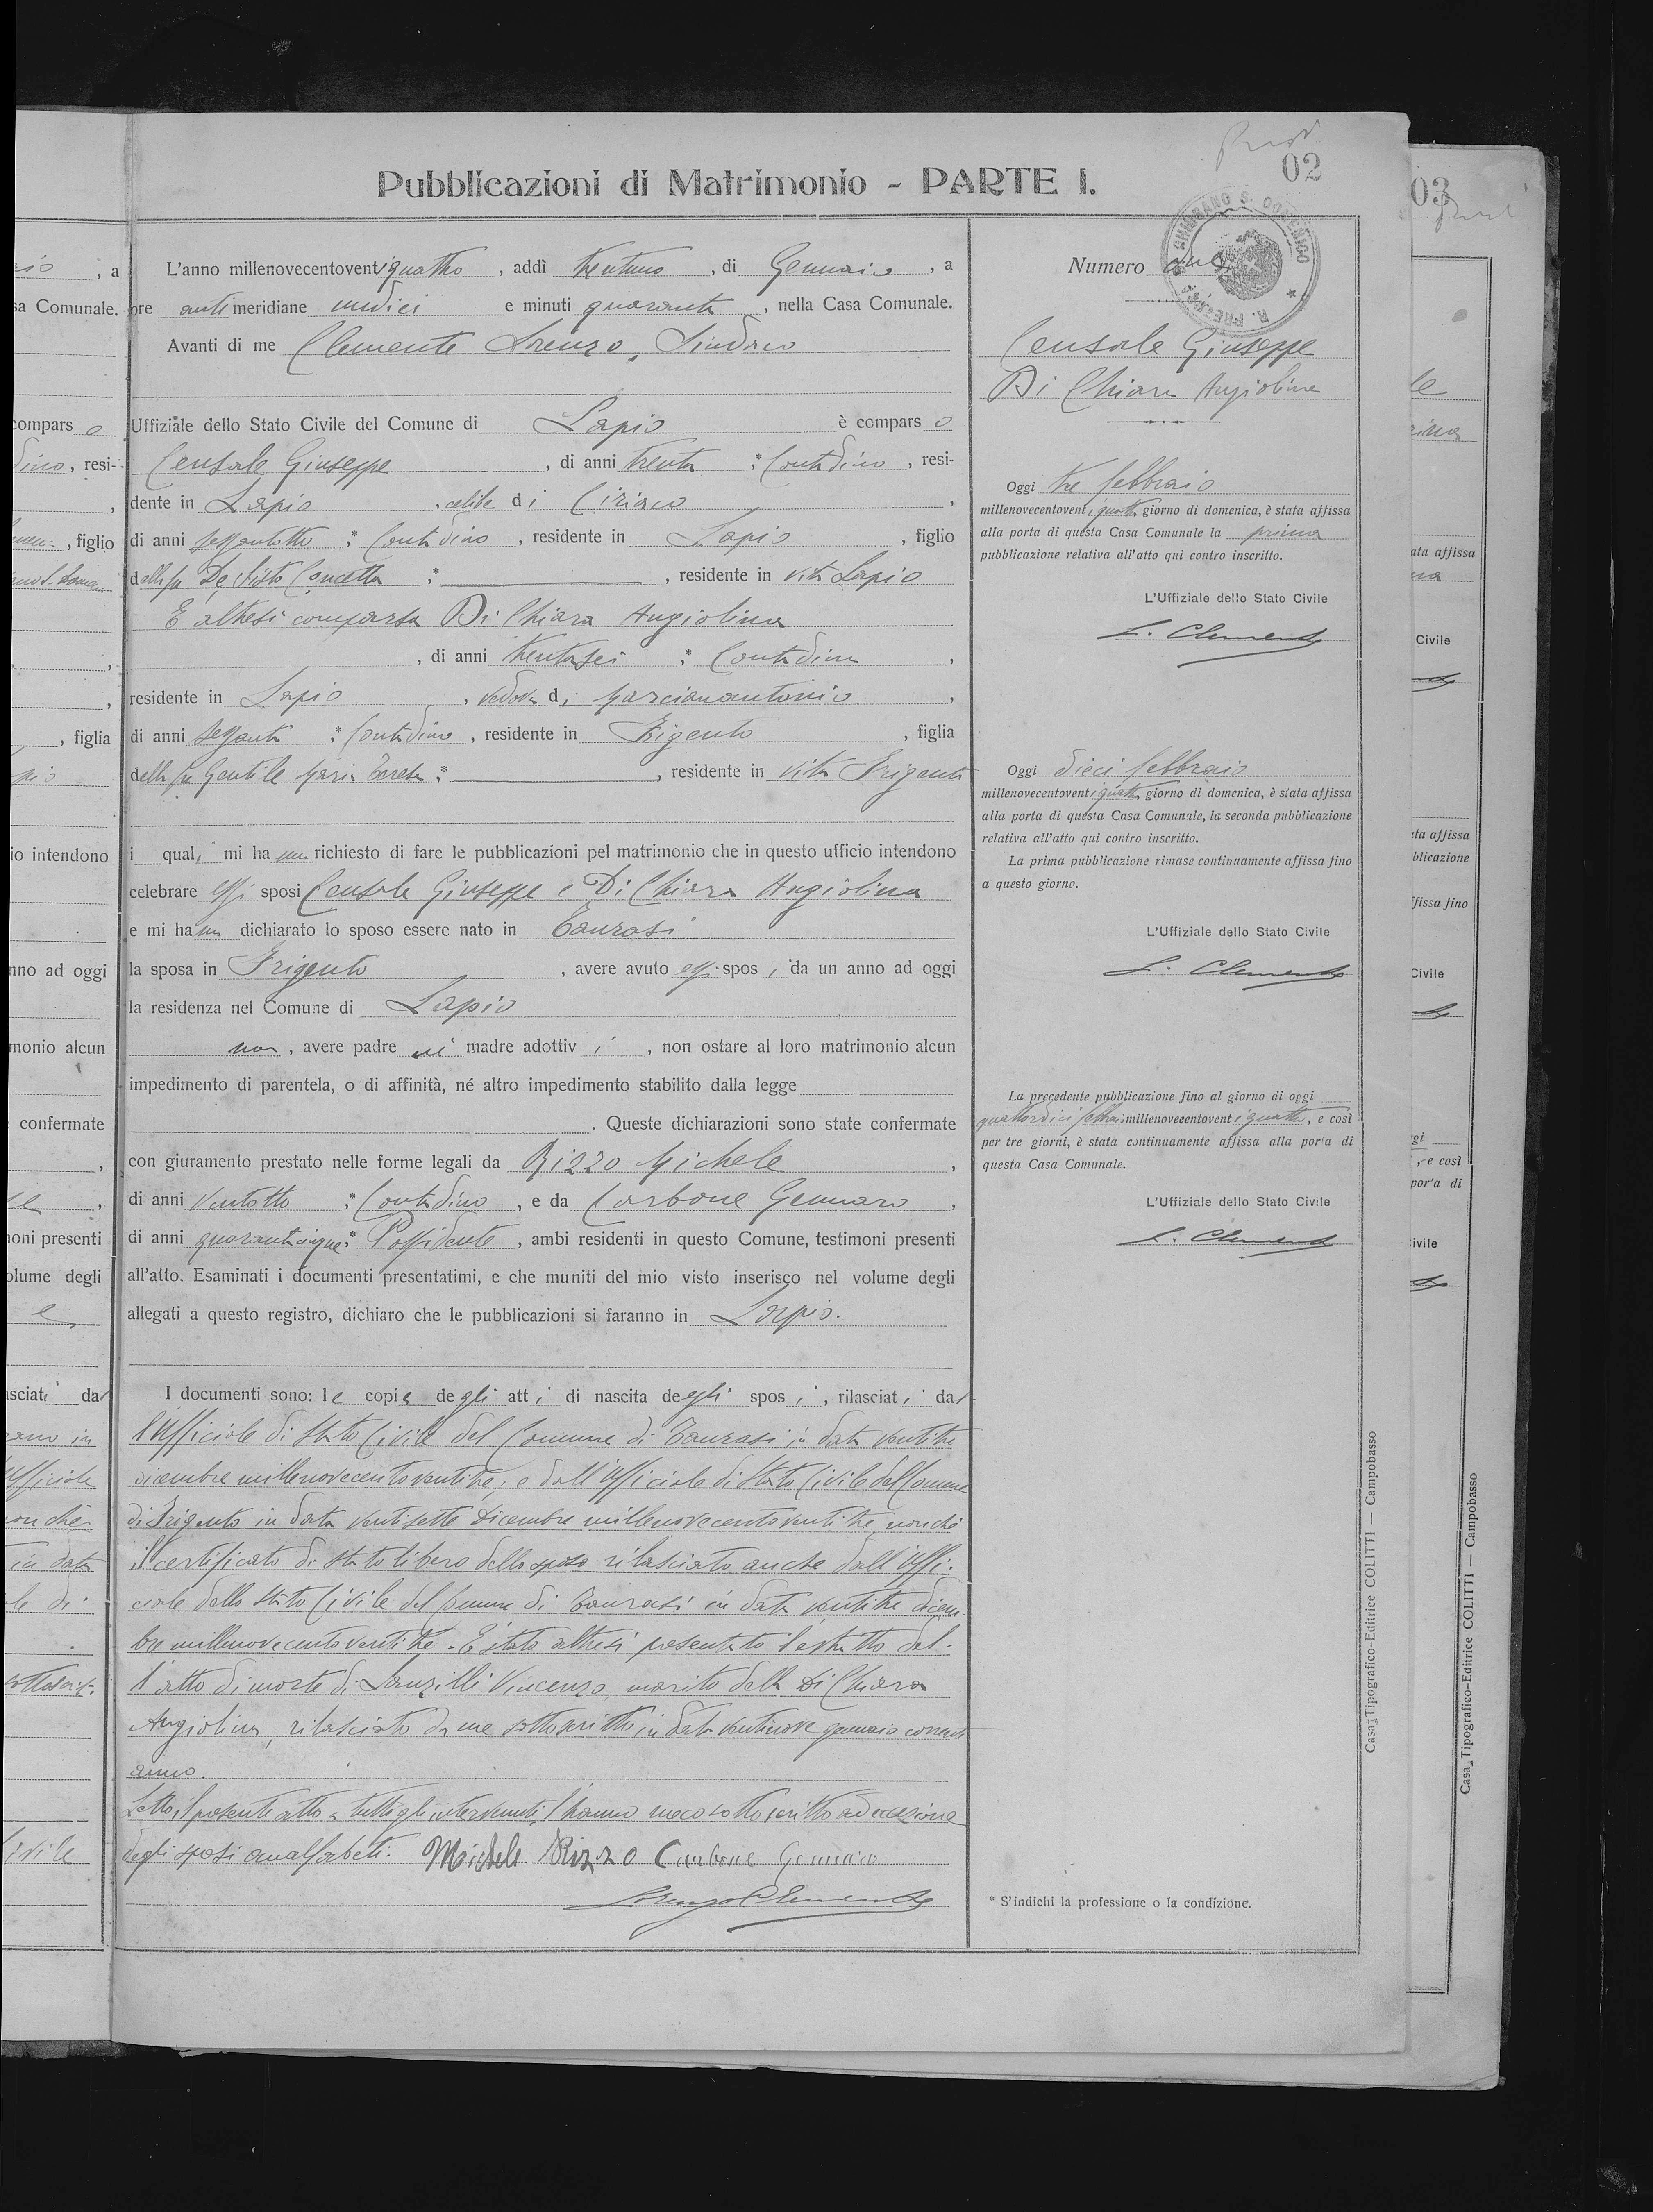 Pubblicazioni di Matrimonio - PARTE I.
02
03
L'anno millenovecentoventiquattro, addì trentuno, di Gennaio, a
ore antimeridiane undici e minuti quaranta, nella Casa Comunale.
Avanti di me Clemente Lorenzo, Sindaco
Uffiziale dello Stato Civile del Comune di Lapio è comparso
Censale Giuseppe, di anni trenta * Contadino, resi-
dente in Lapio, celibe di Ciriaco,
di anni sessantotto * Contadino, residente in Lapio, figlio
della fu De Sisto Concetta *, residente in vita Lapio
E altresì comparsa Di Chiara Angiolina
, di anni trentasei * Contadina,
residente in Lapio, vedova di Marcianantonio,
di anni sessanta * Contadino, residente in Frigento, figlia
della fu Gentile Maria Teresa *, residente in vita Frigento
i quali mi hanno richiesto di fare le pubblicazioni pel matrimonio che in questo ufficio intendono
celebrare essi sposi Censale Giuseppe e Di Chiara Angiolina
e mi hanno dichiarato lo sposo essere nato in Taurasi
la sposa in Frigento, avere avuto essi sposi, da un anno ad oggi
la residenza nel Comune di Lapio
non, avere padre nè madre adottivi, non ostare al loro matrimonio alcun
impedimento di parentela, o di affinità, né altro impedimento stabilito dalla legge
. Queste dichiarazioni sono state confermate
con giuramento prestato nelle forme legali da Rizzo Michele,
di anni ventotto * Contadino, e da Carbone Gennaro,
di anni quarantacinque * Possidente, ambi residenti in questo Comune, testimoni presenti
all'atto. Esaminati i documenti presentatimi, e che muniti del mio visto inserisco nel volume degli
allegati a questo registro, dichiaro che le pubblicazioni si faranno in Lapio.
I documenti sono: le copie degli atti di nascita degli sposi, rilasciati dal
l'Ufficiale di Stato Civile del Comune di Taurasi in data ventitre
dicembre millenovecentoventitre, e dall'Ufficiale di Stato Civile del Comune
di Frigento in data ventisette Dicembre millenovecentoventitre nonchè
il certificato di stato libero dello sposo rilasciato anche dall'Uffi-
ciale dello Stato Civile del Comune di Taurasi in data ventitre dicem-
bre millenovecentoventitre. È stato altresì presentato l'estratto del-
l'atto di morte di Lanzilli Vincenzo marito della Di Chiara
Angiolina, rilasciato da me sottoscritto in data ventinove gennaio corrente
anno.
Letto il presente atto a tutti gli intervenuti, l'hanno meco sottoscritto ad eccezione
degli sposi analfabeti. Michele Rizzo Carbone Gennaro
Lorenzo Clemente
Numero due
Censale Giuseppe
Di Chiara Angiolina
Oggi tre febbraio
millenovecentoventiquattro giorno di domenica, è stata affissa
alla porta di questa Casa Comunale la prima
pubblicazione relativa all'atto qui contro inscritto.
L'Uffiziale dello Stato Civile
L. Clemente
Oggi dieci febbraio
millenovecentoventiquattro giorno di domenica, è stata affissa
alla porta di questa Casa Comunale, la seconda pubblicazione
relativa all'atto qui contro inscritto.
La prima pubblicazione rimase continuamente affissa fino
a questo giorno.
L'Uffiziale dello Stato Civile
L. Clemente
La precedente pubblicazione fino al giorno di oggi
quattordici febbraio millenovecentoventiquattro, e così
per tre giorni, è stata continuamente affissa alla porta di
questa Casa Comunale.
L'Uffiziale dello Stato Civile
L. Clemente
* S'indichi la professione o la condizione.
Casa Tipografico-Editrice COLITTI — Campobasso
Casa Tipografico-Editrice COLITTI — Campobasso